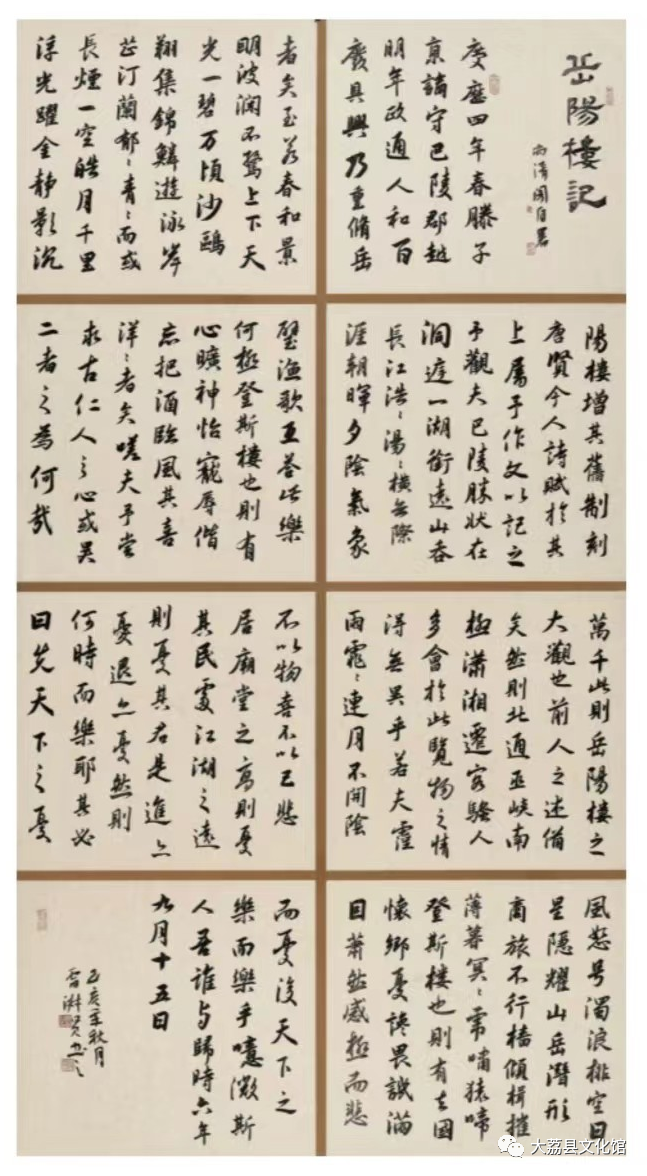 岳陽樓記
自署
慶曆四年春滕子
京謫守巴陵郡越
明年政通人和百
廢具興乃重脩岳
陽樓增其舊制刻
唐賢今人詩賦於其
上屬予作文以記之
予觀夫巴陵勝狀在
洞庭一湖銜遠山吞
長江浩〻湯〻橫無際
涯朝暉夕陰氣象
萬千此則岳陽樓之
大觀也前人之述備
矣然則北通巫峽南
極瀟湘遷客騷人
多會於此覽物之情
得無異乎若夫霪
雨霏〻連月不開陰
風怒号濁浪排空日
星隱耀山岳潛形
商旅不行檣傾楫摧
薄暮冥〻虎嘯猿啼
登斯樓也則有去國
懷鄉憂讒畏譏滿
目蕭然感極而悲
者矣至若春和景
明波瀾不驚上下天
光一碧万頃沙鷗
翔集錦鱗遊泳岸
芷汀蘭郁〻青〻而或
長煙一空皓月千里
浮光躍金靜影沉
璧漁歌互荅此樂
何極登斯樓也則有
心曠神怡寵辱偕
忘把酒臨風其喜
洋〻者矣嗟夫予嘗
求古仁人之心或異
二者之為何哉
不以物喜不以己悲
居廟堂之高則憂
其民處江湖之遠
則憂其君是進亦
憂退亦憂然則
何時而樂耶其必
曰先天下之憂
而憂後天下之
樂而樂乎噫微斯
人吾誰与歸時六年
九月十五日
己亥年秋月
大荔县文化馆